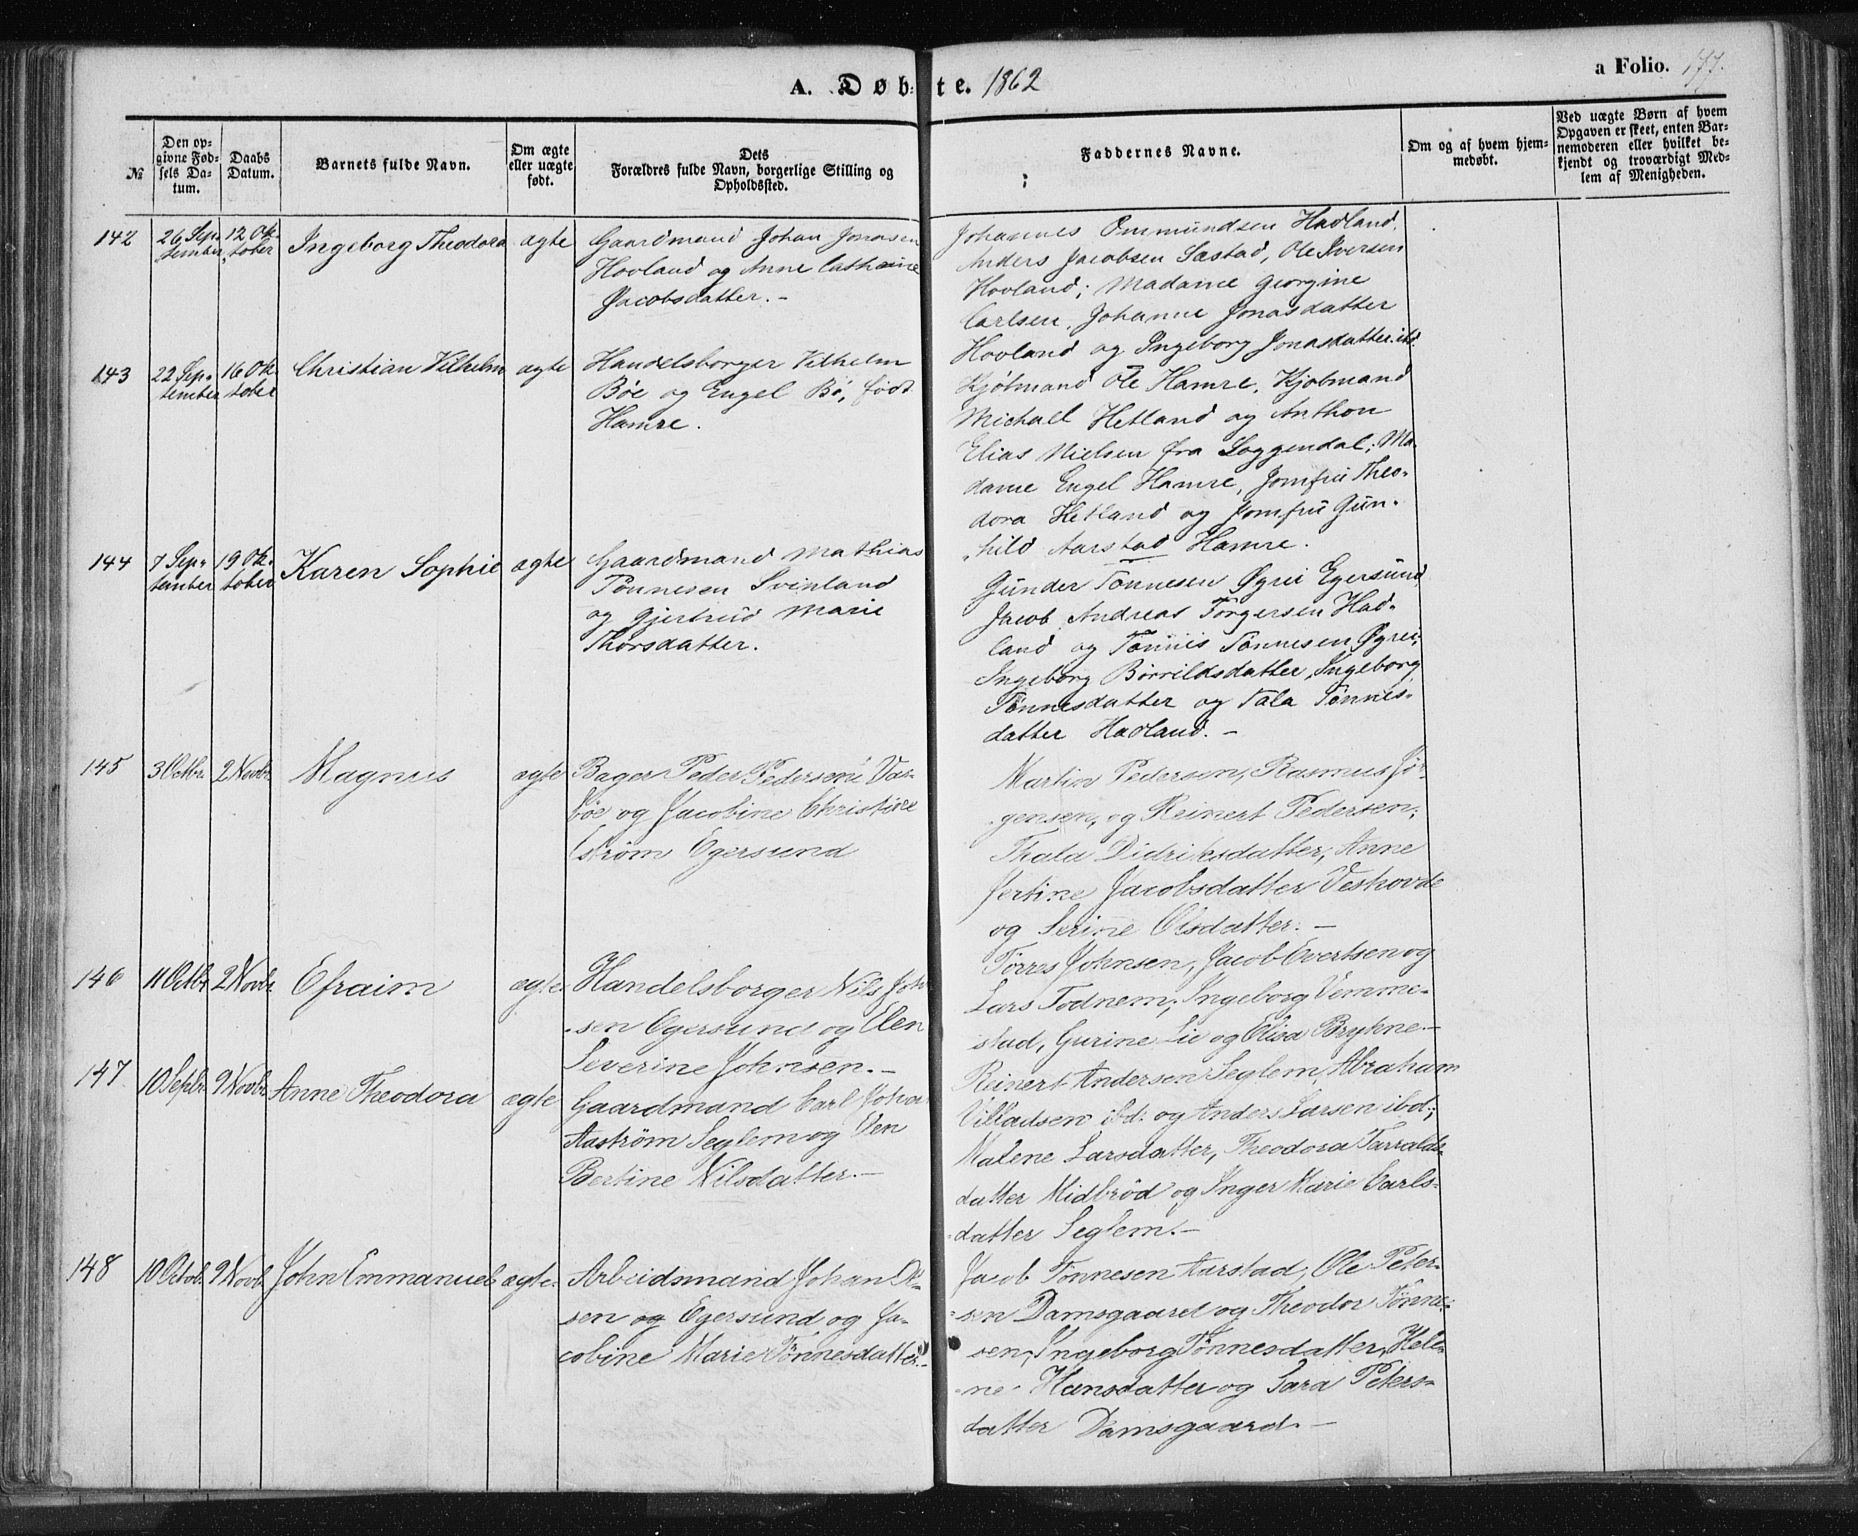 A. Døbte. 1862
a Folio. 177.
№
Den opgivne Fødsels Datum.
Daabs Datum.
Barnets fulde Navn.
Om ægte eller uægte født.
Dets Forældres fulde Navn, borgerlige Stilling og Opholdssted.
Faddernes Navne.
Om og af hvem hjemmedøbt.
Ved uægte Børn af hvem Opgaven er skeet, enten Barnemoderen eller hvilket bekjendt og troværdigt Medlem af Menigheden.
142
26 Sep-
tember
12 Ok-
tober
Ingeborg Theodora
ægte
Gaardmand Johan Jonasen
Hovland og Anne Cathrine
Jacobsdatter. -
Johannes Ommundsen Hadland,
Anders Jacobsen Sæstad, Ole Iversen
Hovland; Madame Georgine
Carlsen, Johanne Jonasdatter
Hovland og Ingeborg Jonasdatter ibd
143
22 Sep-
tember
16 Ok-
tober
Christian Vilhelm
ægte
Handelsborger Vilhelm
Böe og Engel Bö, født
Hamre.
Kjöbmand Ole Hamre, Kjobmand
Michall Hetland og Anthon
Elias Nielsen fra Soggendal; Ma-
dame Engel Hamre, Jomfru Theo-
dora Hetland og Jomfru Gun-
hild Aarstad Hamre.
144
7 Sep-
tember
19 Ok-
tober
Karen Sophie
ægte
Gaardmand Mathias
Tönnesen Svinland
og Gjertrud Marie
Thorsdatter.
Gunder Tönnesen Øgrei Egersund
Jacob Andreas Torgersen Had-
land og Tönnis Tönnesen Øgrei;
Ingeborg Börrildsdatter, Ingeborg
Tönnesdatter og Tala Tønnis-
datter Hadland. -
145
3 Octbr.
2 Novbr.
Magnus
ægte
Bager Peder Pedersen Var-
bøe og Jacobine Christine
Estrøm Egersund
Martin Pedersen, Rasmus Jør-
gensen, og Reinert Pedersen;
Thala Didriksdatter, Anne
Jertine Jacobsdatter Veshovde
og Serine Olsdatter. -
146
11 Octbr
2 Novbr.
Efraim
ægte
Handelsborger Nils John-
sen Egersund og Elen
Severine Johnsen. -
Tørres Johnsen, Jacob Evertsen og
Lars Todnem; Ingeborg Vemme-
stad, Gurine Lie og Elisa Brykne. -
147
10 Septbr
9 Novbr.
Anne Theodora
ægte
Gaardmand Carl Johan
Aastrøm Seglem og Elen
Bertine Nilsdatter. -
Reinert Andersen Seglem, Abraham
Villadsen ibd: og Anders Larsen ibd.;
Malene Larsdatter, Theodora Tarralds-
datter Midbröd og Inger Marie Carls-
datter Seglem. -
148
10 Octob.
9 Novb.
John Emmanuel
ægte.
Arbeidsmand Johan Ol-
sen og Egersund og Ja-
cobine Marie Tönnesdatter. -
Jacob Tönnesen Aarstad, Ole Peter-
sen Damsgaard og Theodor Tønne-
sen; Ingeborg Tønnesdatter, Hele-
ne Hansdatter og Sara Peters-
datter Damsgaard. -